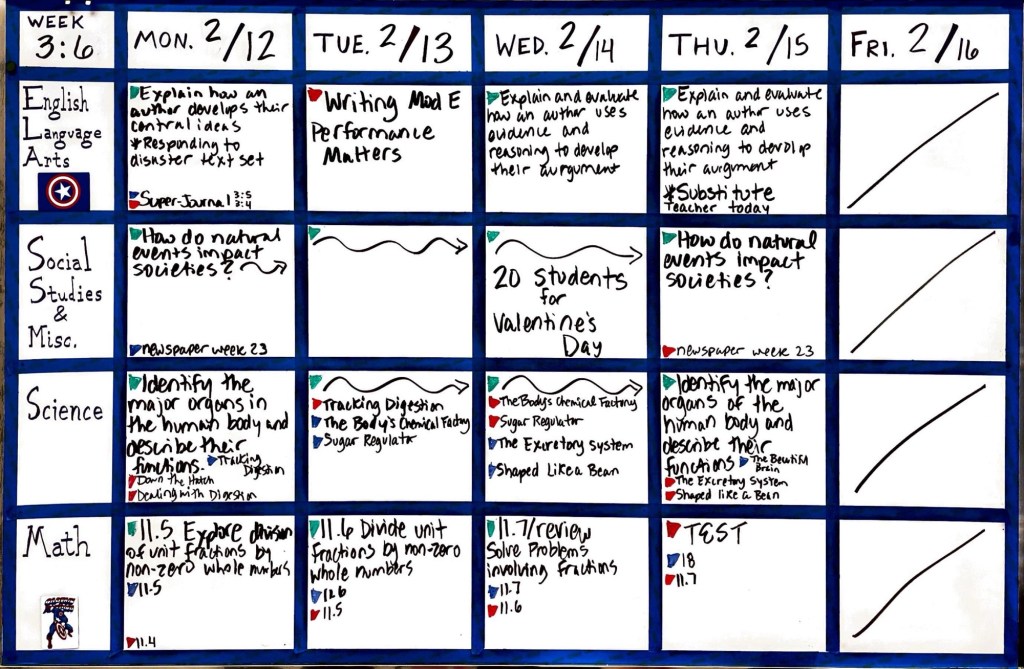 WEEK
3:6
MON. 2/12
TUE. 2/13
WED. 2/14
THU. 2/15
FRI. 2/16
English
Language
Arts
Explain how an
author develops their
central ideas
*Responding to
disaster text set
Super-Journal 3:5
3:4
Writing Mod E
Performance
Matters
Explain and evaluate
how an author uses
evidence and
reasoning to develop
their aurgument
Explain and evaluate
how an author uses
evidence and
reasoning to develop
their aurgument
*Substitute
Teacher today
Social
Studies
&
Misc.
How do natural
events impact
societies?
newspaper week 23
20 students
for
Valentine's
Day
How do natural
events impact
societies?
newspaper week 23
Science
Identify the
major organs in
the human body and
describe their
functions. Tracking
Digestion
Down the Hatch
Dealing with Digestion
Tracking Digestion
The Body's Chemical Factory
Sugar Regulator
The Body's Chemical Factory
Sugar Regulator
The Excretory System
Shaped Like a Bean
Identify the major
organs of the
human body and
describe their
functions The Beautiful
Brain
The Excretory System
Shaped like a Bean
Math
11.5 Explore division
of unit fractions by
non-zero whole numbers
11.5
11.4
11.6 Divide unit
fractions by non-zero
whole numbers
11.6
11.5
11.7/review
Solve Problems
involving fractions
11.7
11.6
TEST
18
11.7